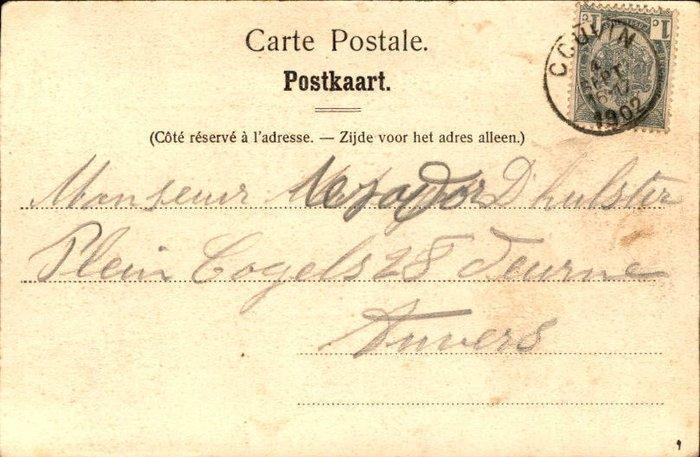 Carte Postale.
Postkaart.
(Côté réservé à l'adresse. — Zijde voor het adres alleen.)
COUVIN
SEPT
1902
1c 1c
Monsieur D'hulster
Plein Cogels 28 Deurne
Anvers